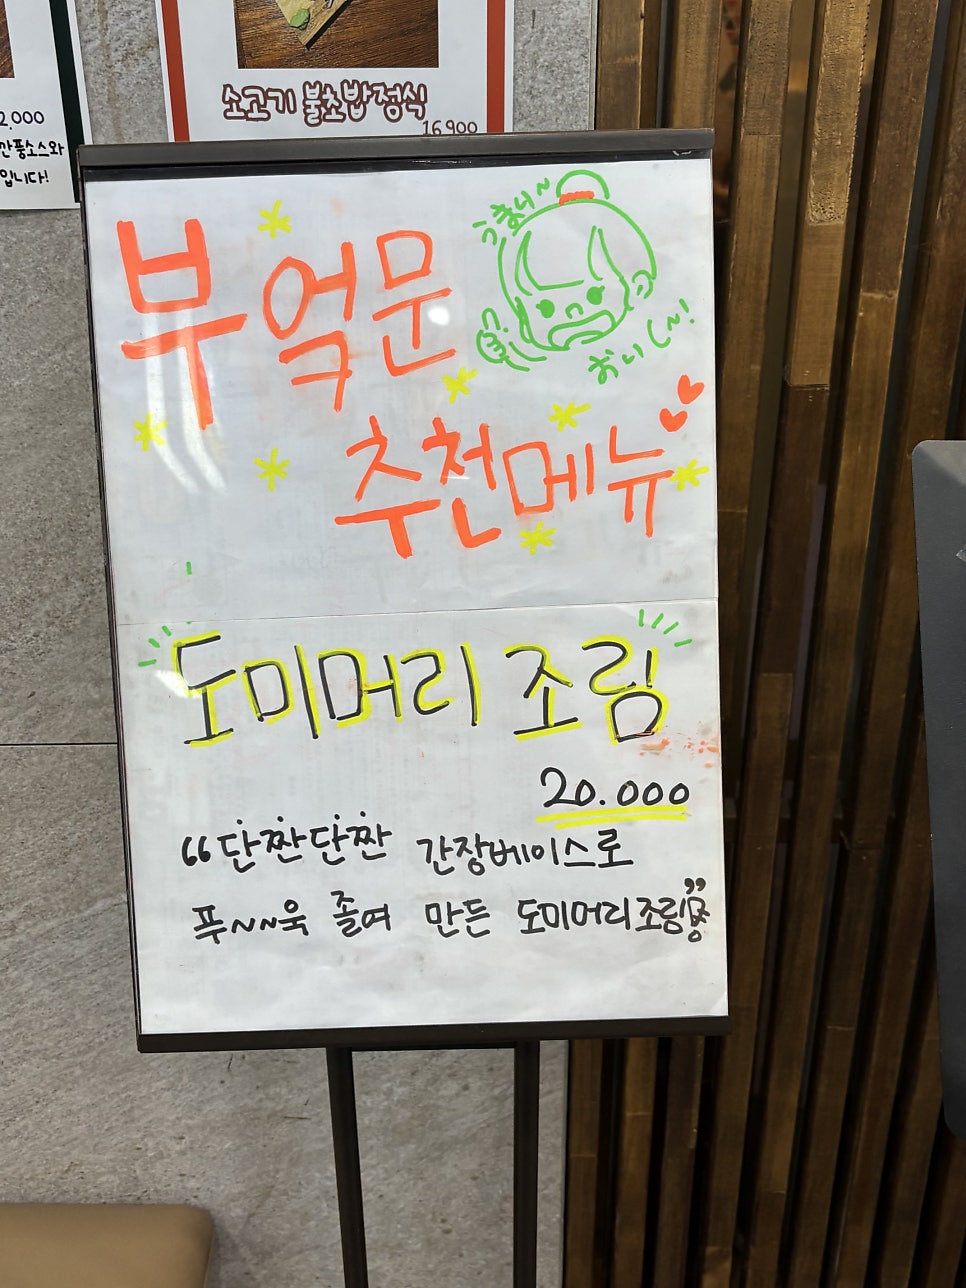 2.000
깐풍소스와
입니다!
소고기 불초밥정식
16,900
부엌문
추천메뉴
うまい~
おいし~!
도미머리 조림
20.000
“단짠단짠 간장베이스로
푸~~욱 졸여 만든 도미머리조림”